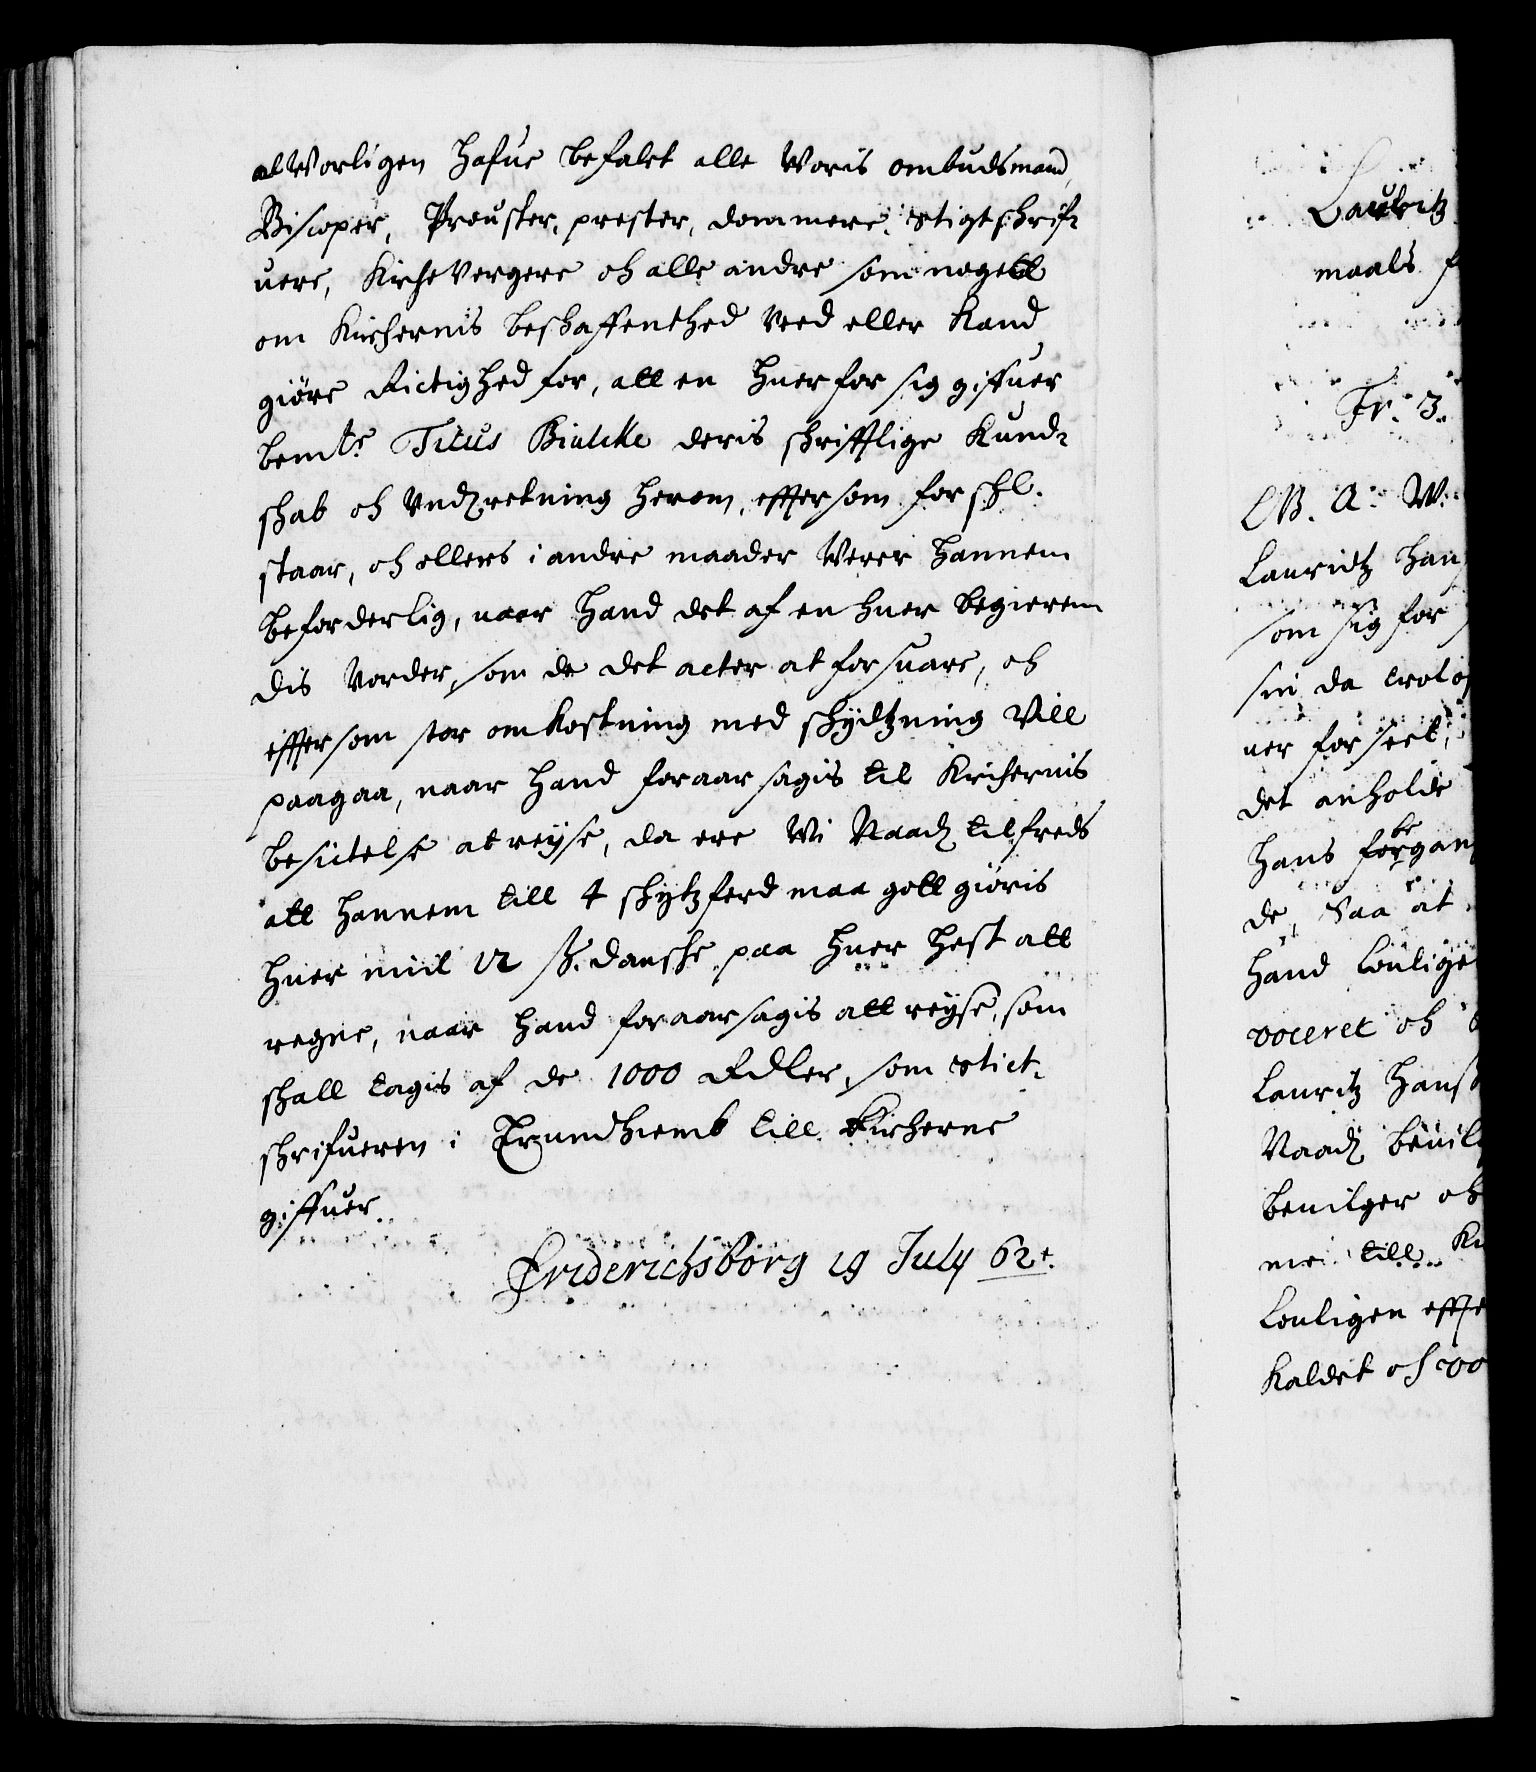 alvorligen hafue befalet alle Voris ombudsmænd,
Biscoper, Prouster, prester, dommere, stigtschrif-
uere, Kirchevergere och alle andre som nogett
om Kirchernis beschaffenhed veed eller kand
giöre Rictighed for, att en huer for sig giffuer
bemte Titus Bülche deris schrifftlige Kund-
schab och Underretning herom, effter som for schl.
staar, och ellers i andre maader verer hannem
beforderlig, naar hand det af en huer begierem
dis vorder, som de det acter at forsuare, och
effter som stor omkostning med schydtzning vill
paagaa, naar hand foraarsagis til Kirchernis
besictelse at reyse, da ere Vi Naadl tilfreds
att hannem till 4 schytzferd maa gott giöris
huer miil 12 ß. dansche paa huer hest att
regne, naar hand foraarsagis att reyse, som
schall tagis af de 1000 Rdler, som stict-
schrifueren i Trundhiemb till Kircherne
giffuer.
Friderichsborg 19 July 62t.
Lauritz
maals
Fr: 3.
G. A: W:
Lauridtz Han
som sig for
sin da
uer forseet,
det anholde
be
hans forgan
de, Saa at
hand Loulige
voceret och
Lauritz Hans
Naadl beuil
beuilger och
me till
Louligen effte
Kaldet och vo